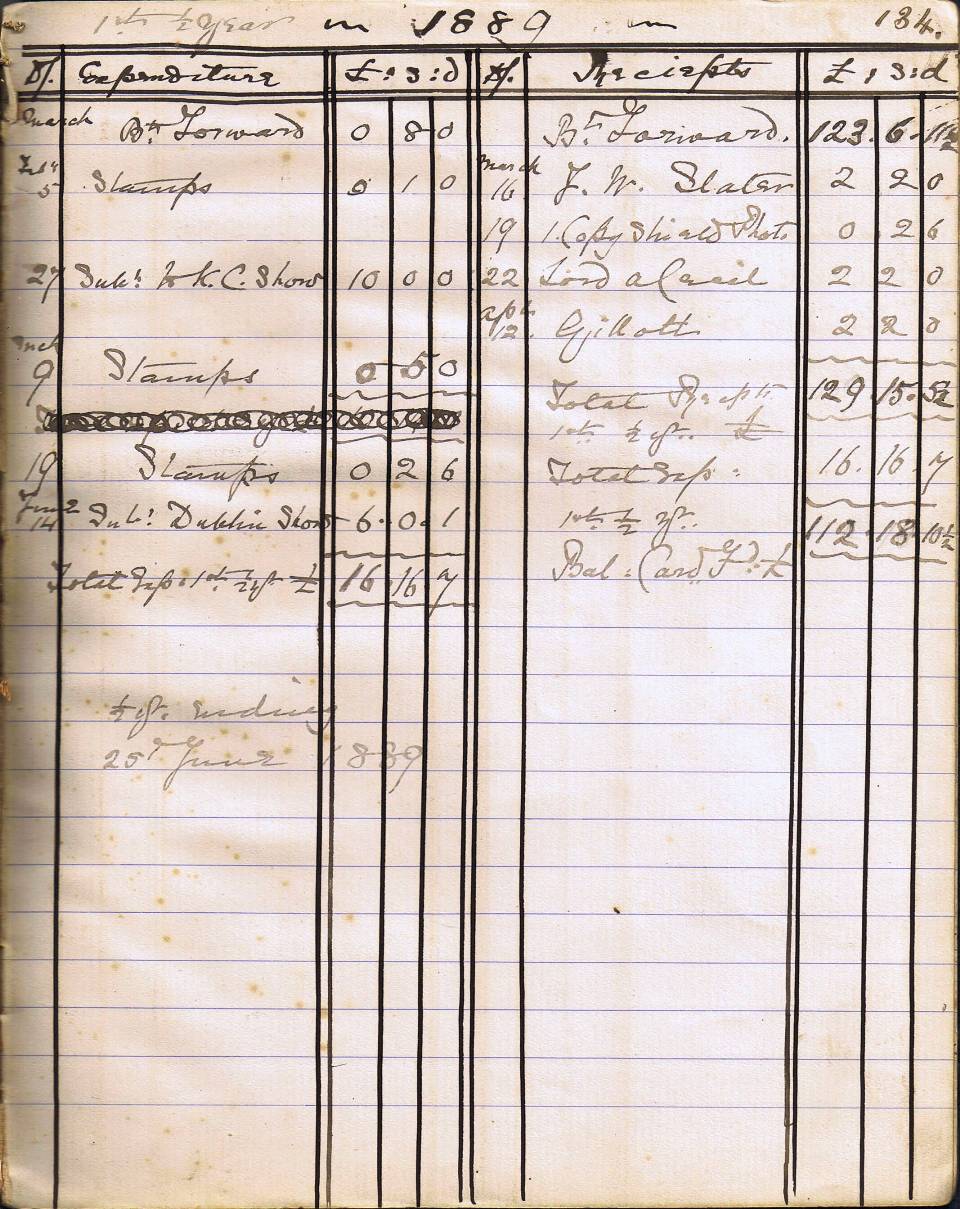 1th ½ Year in 1889 in 134.
D/. Expenditure £ : s : d
March Bt Forward 0 8 0
5 Stamps 0 1 0
27 Subs. to K. C. Show 10 0 0
Mch
9 Stamps 0 5 0
19 Stamps 0 2 6
June
14 Subs. Dublin Show 6. 0. 1
Total Exp: 1th ½ yr £ 16. 16. 7
½ yr. ending
25th June 1889
D/. Reciepts £ : s : d
Bt Forward. 123. 6. 11½
March
16 J. W. Slater 2 2 0
19 1. Copy Shield Photo 0. 2 6
22 Lord a Cecil 2 2 0
apl
12. Gillott 2 2 0
Total Recpts. 129. 15. 5½
1th ½ yr. £
Total Exp: 16. 16. 7
1th ½ yr.
112. 18. 10½
Bal: Card Fd. £